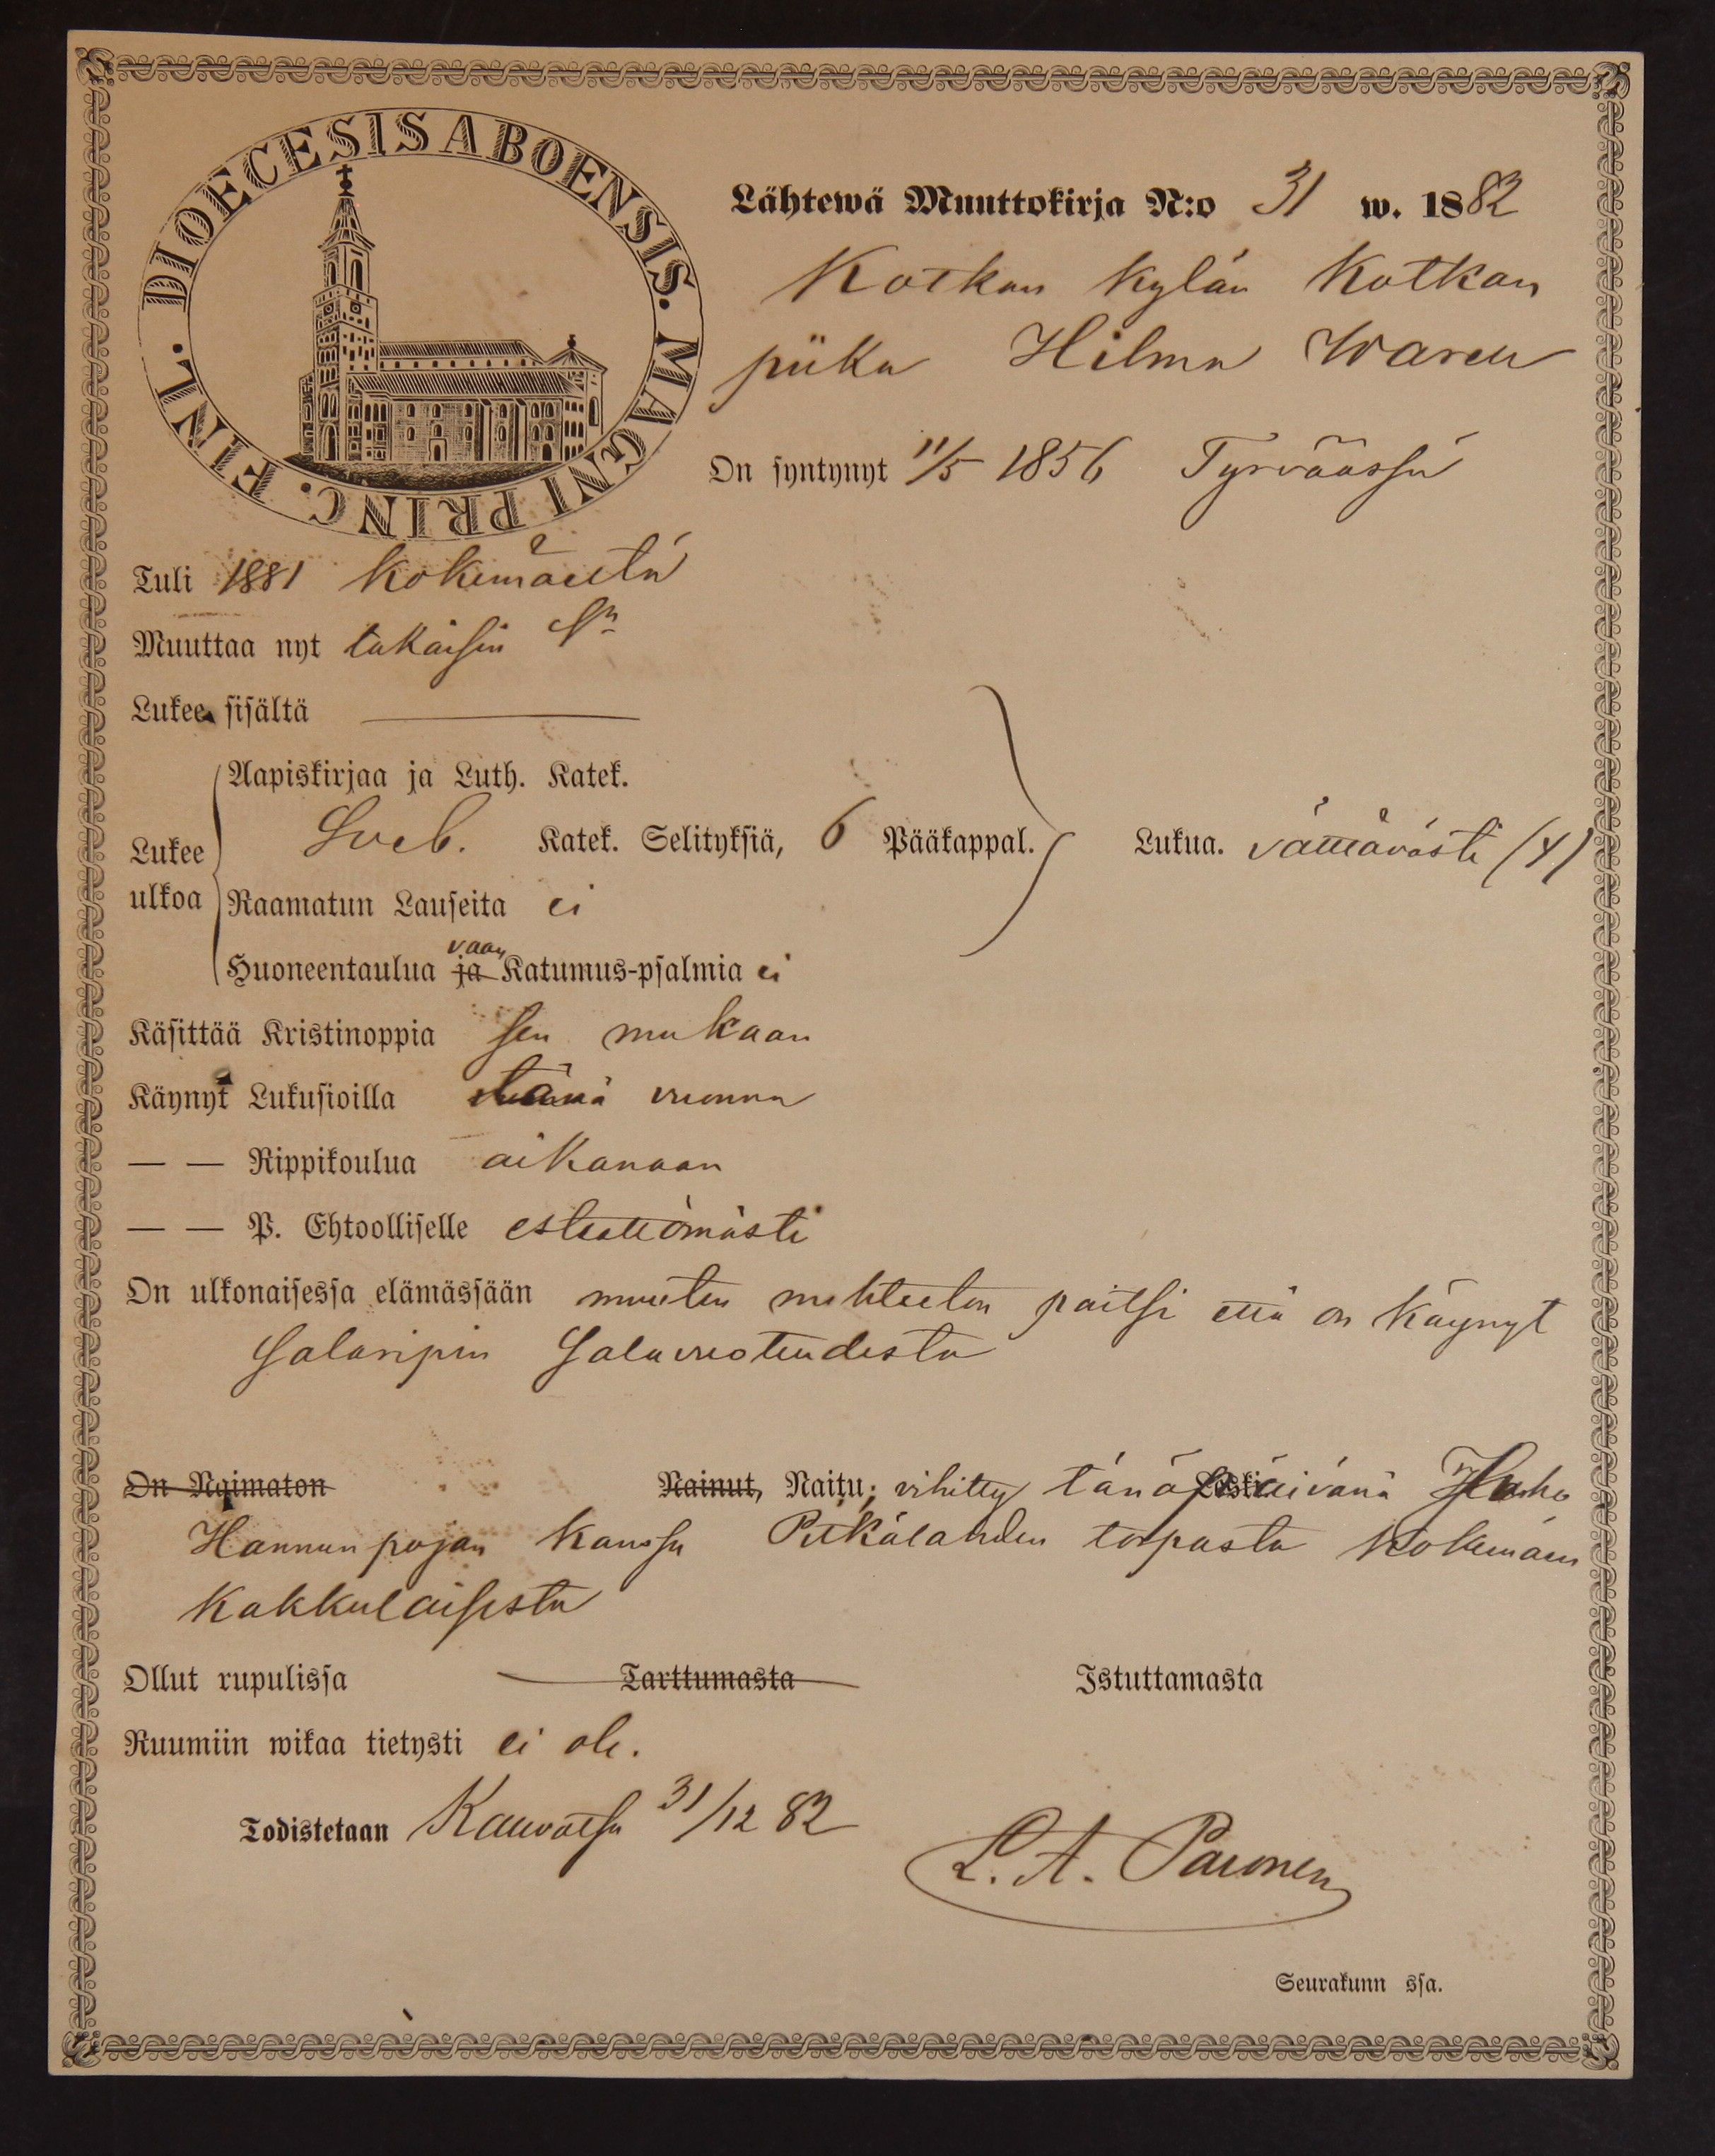 DIOECESIS ABOENSIS. MAGNI PRINC. FINL.
Lähtewä Muuttokirja N:o 31 w. 1882
Kotkan kylän Kotkan
piika Hilma Waren
On syntynyt 11/5 1856 Tyrväässä
Tuli 1881 Kokemäeltä
Muuttaa nyt takaisin
Lukee sisältä
Aapiskirjaa ja Luth. Katek.
Lukee ulkoa Sveb. Katek. Selityksiä, 6 Pääkappal. Lukua. välttävästi (4)
Raamatun Lauseita ei
Huoneentaulua ja vaan Katumus-psalmia ei
Käsittää Kristinoppia sen mukaan
Käynyt Lukusioilla tänä vuonna
— — Rippikoulua aikanaan
— — P. Ehtoolliselle esteettömästi
On ulkonaisessa elämässään muuten nuhteeton paitsi että on käynyt
Salaripin Salavuoteudesta
On Naimaton Nainut, Naitu; vihitty tänä päivänä Leski Juho
Hannunpojan kanssa Pitkälahden torpasta Kokemäen
Kakkulaisesta
Ollut rupulissa Tarttumasta Istuttamasta
Ruumiin wikaa tietysti ei ole.
Todistetaan Kauvatsa 31/12 82
L. A. Paronen
Seurakunn ssa.